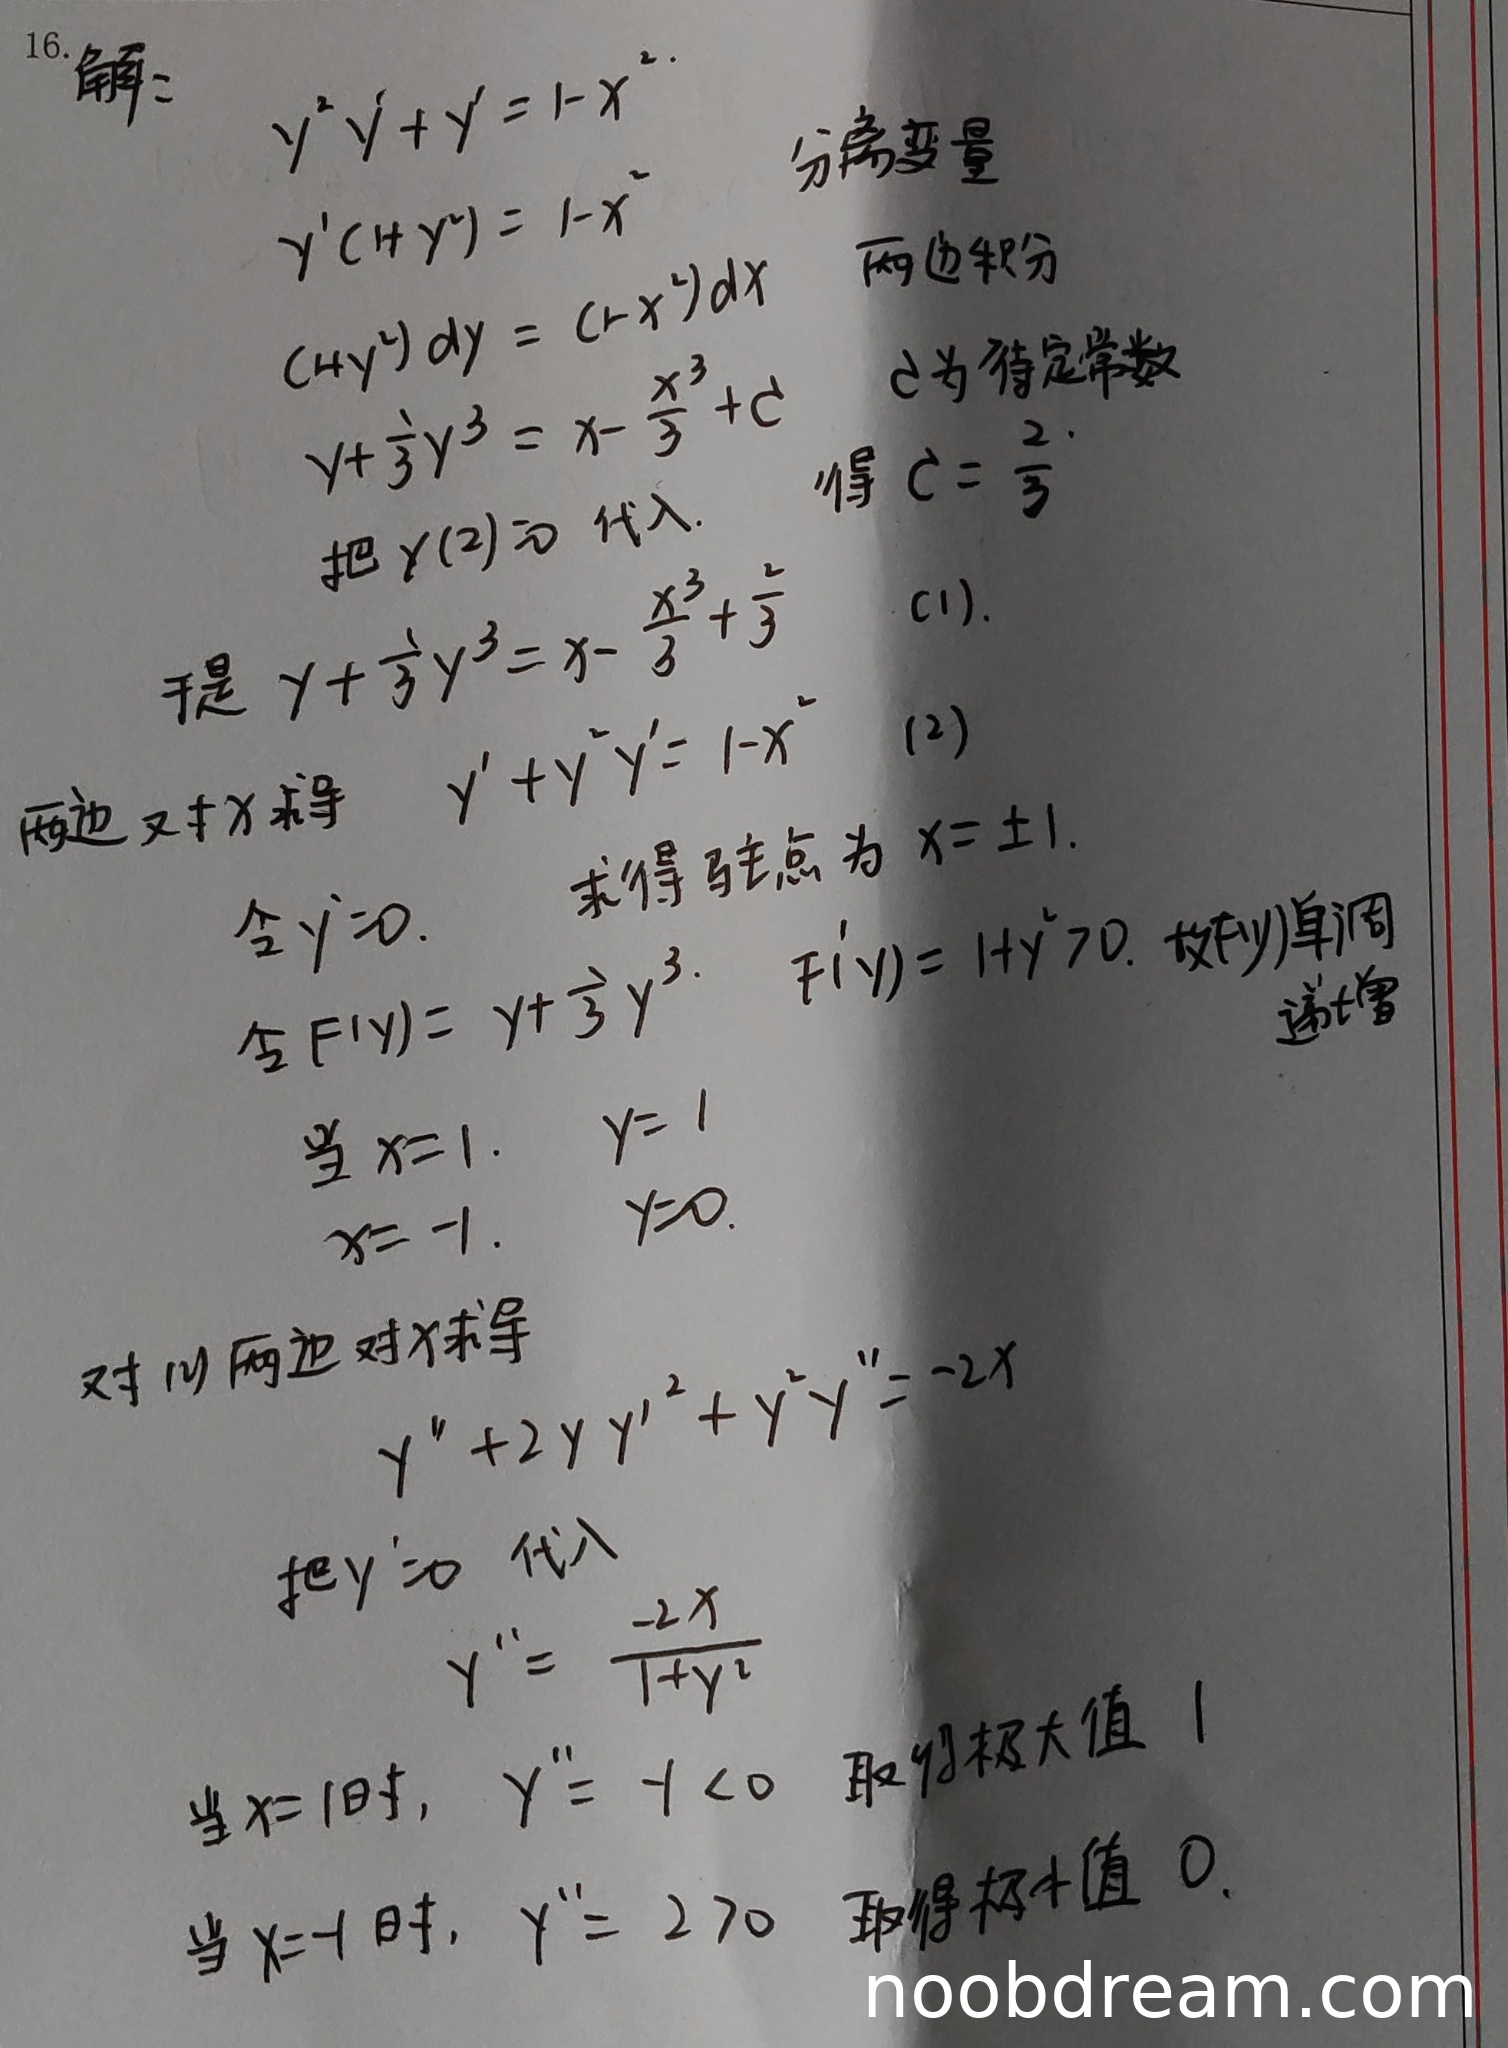 16. 解:
y²y' + y' = 1-x².
y'(1+y²) = 1-x² 分离变量
(1+y²)dy = (1-x²)dx 两边积分
y+⅓y³ = x-x³/3+C C为待定常数
把y(2)=0 代入. 得 C = 2/3.
于是 y+⅓y³ = x-x³/3+2/3 (1).
两边对x求导 y'+y²y' = 1-x² (2)
令y'=0. 求得驻点为 x=±1.
令F(y)= y+⅓y³. F'(y)= 1+y²>0. 故F(y)单调
递增
当 x=1. y=1
x=-1. y=0.
对(2)两边对x求导
y''+2yy'²+y²y''=-2x
把y'=0 代入
y''= -2x/(1+y²)
当x=1时, y''= -1<0 取得极大值 1
当x=-1时, y''= 2>0 取得极小值 0.
noobdream.com